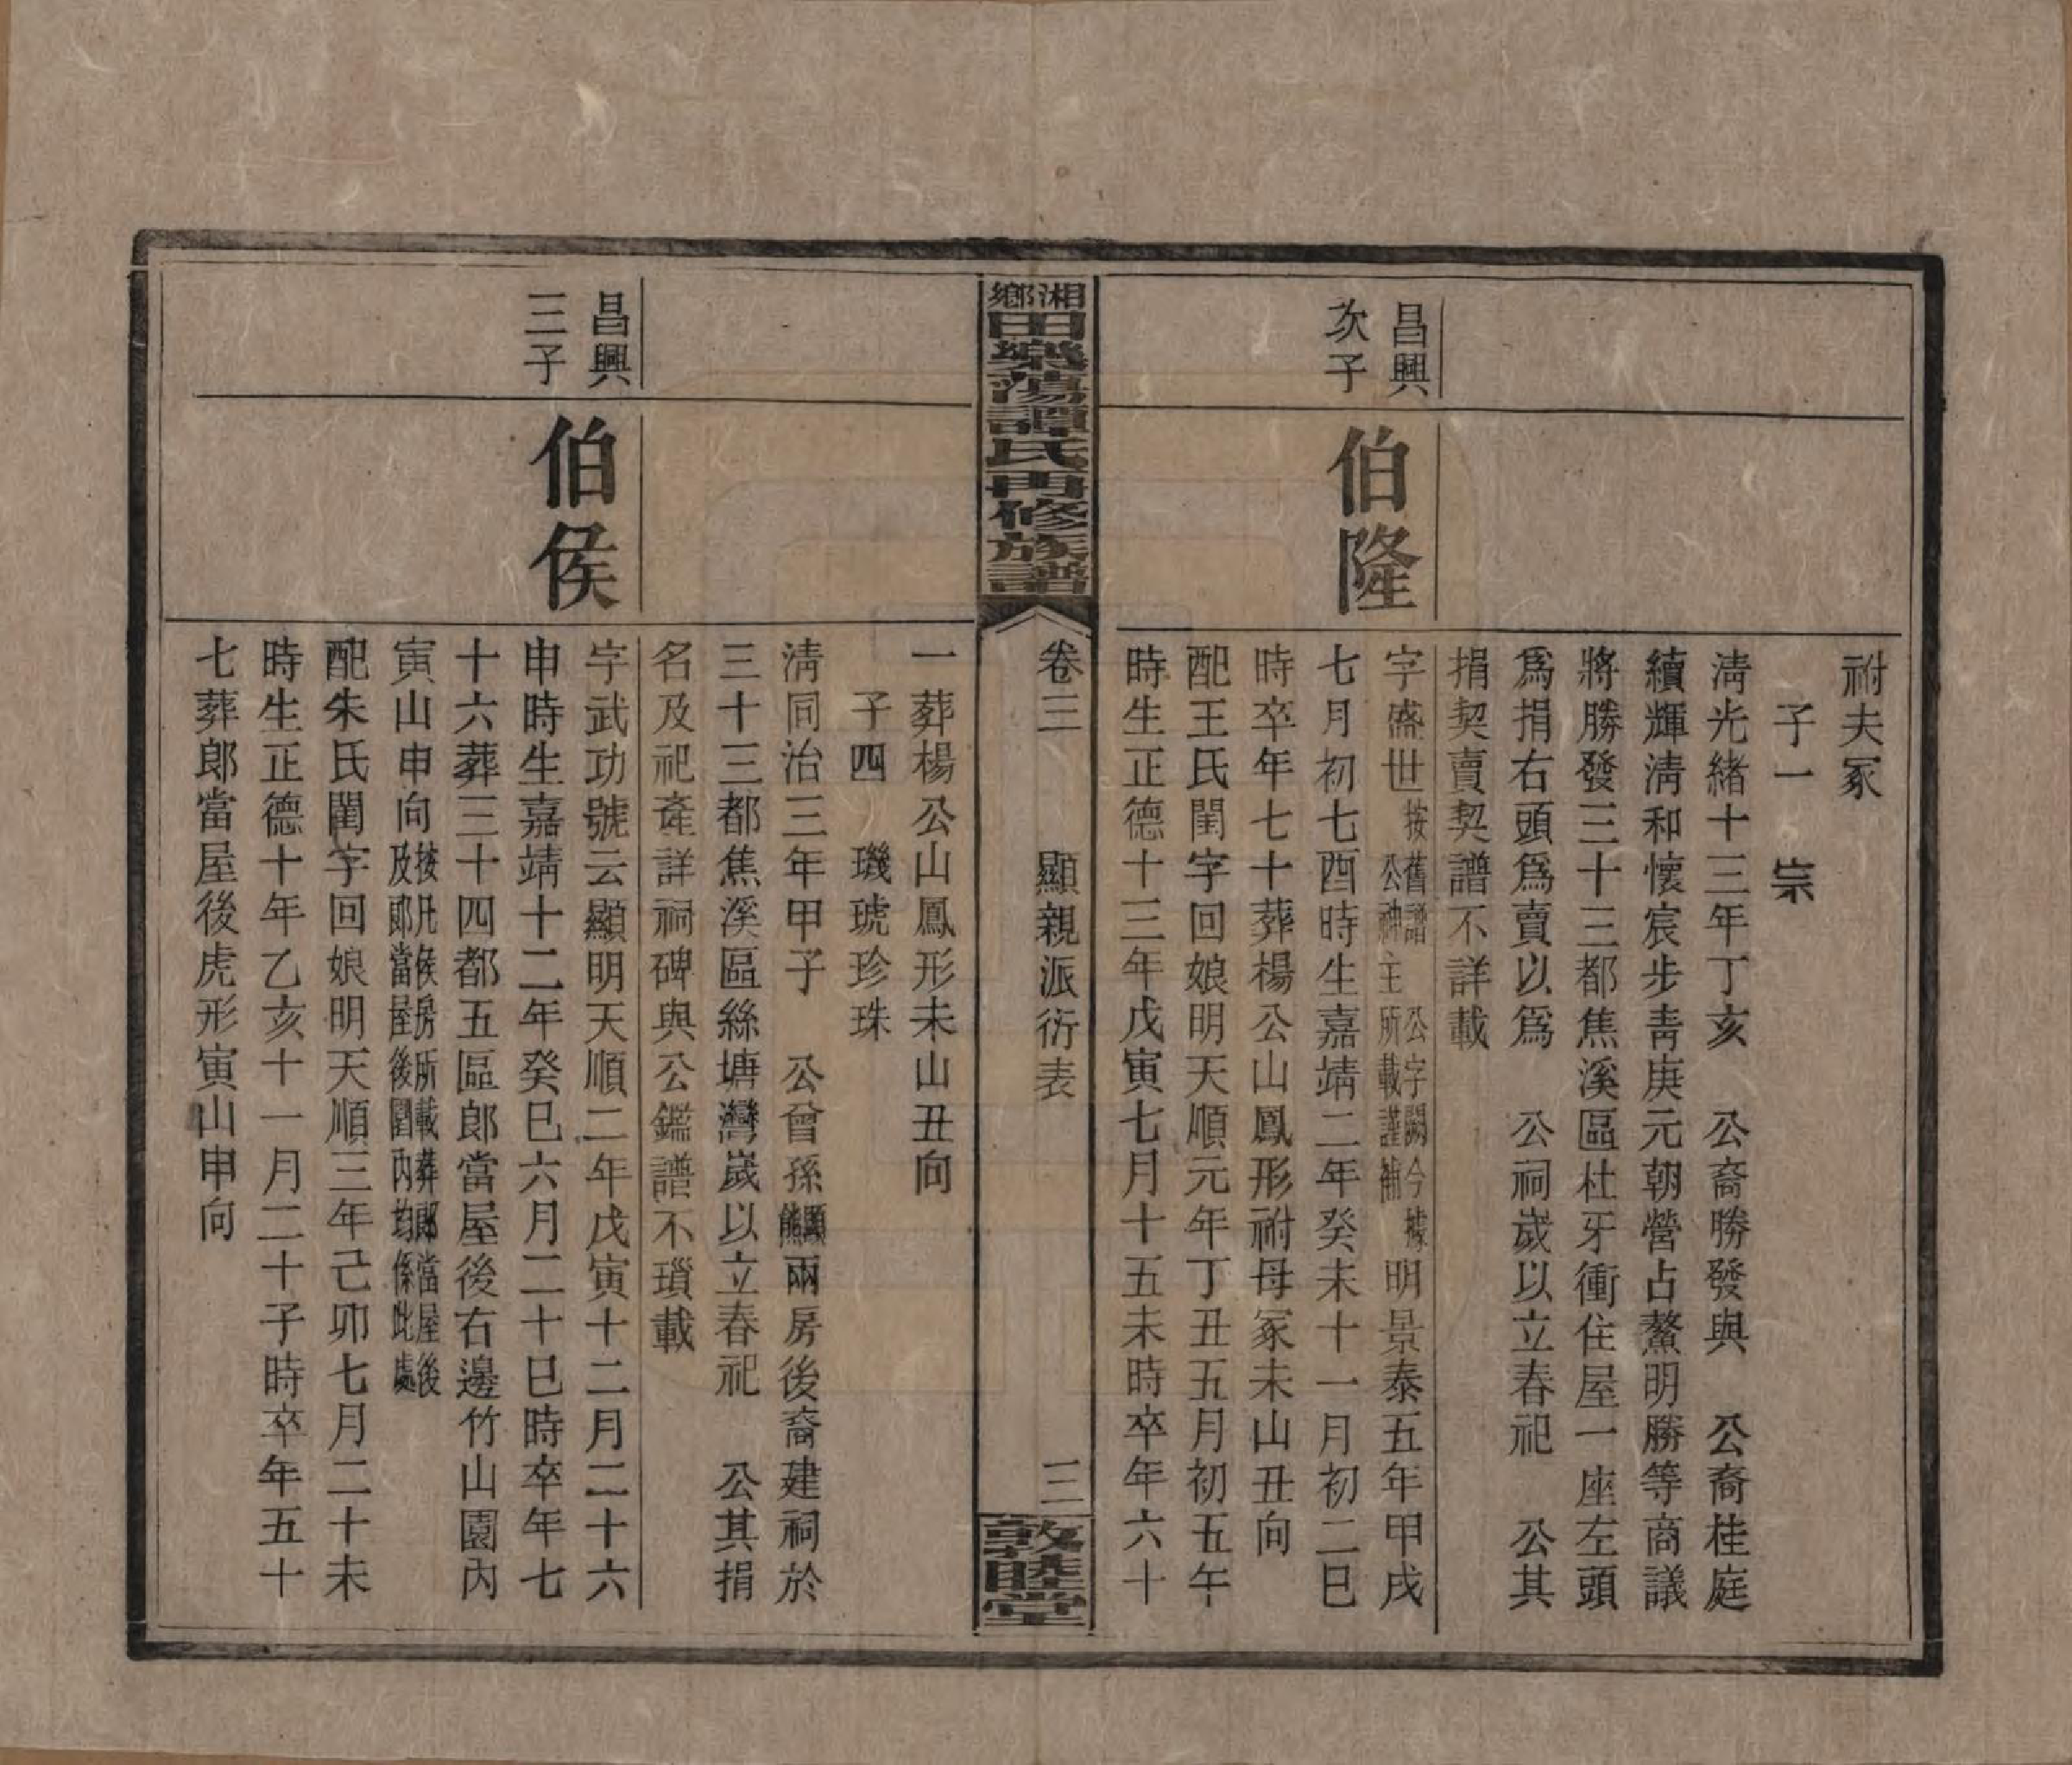 祔夫冢
子一　崇
淸光緒十三年丁亥　公裔勝發與　公裔桂庭
續輝淸和懷宸步靑庚元朝營占鰲明勝等商議
將勝發三十三都焦溪區杜牙衝住屋一座左頭
爲捐右頭爲賣以爲　公祠歲以立春祀　公其
捐契賣契譜不詳載
昌興
次子
伯隆
字盛世
按舊譜　公字闕今據
公神主　所載謹補
明景泰五年甲戌
七月初七酉時生嘉靖二年癸未十一月初二巳
時卒年七十葬楊公山鳳形祔母冢未山丑向
配王氏閨字回娘明天順元年丁丑五月初五午
時生正德十三年戊寅七月十五未時卒年六十
湘鄉田樂蕩譚氏再修族譜
卷三　顯親派衍表　三
敦睦堂
一葬楊公山鳳形未山丑向
子四　璣琥珍珠
淸同治三年甲子　公曾孫
顯
熊
兩房後裔建祠於
三十三都焦溪區絲塘灣歲以立春祀　公其捐
名及祀產詳祠碑與公鑑譜不瑣載
昌興
三子
伯侯
字武功號云顯明天順二年戊寅十二月二十六
申時生嘉靖十二年癸巳六月二十巳時卒年七
十六葬三十四都五區郎當屋後右邊竹山園內
寅山申向
按凡侯房所載葬郎當屋後
及郎當屋後園內均係此處
配朱氏閨字回娘明天順三年己卯七月二十未
時生正德十年乙亥十一月二十子時卒年五十
七葬郎當屋後虎形寅山申向